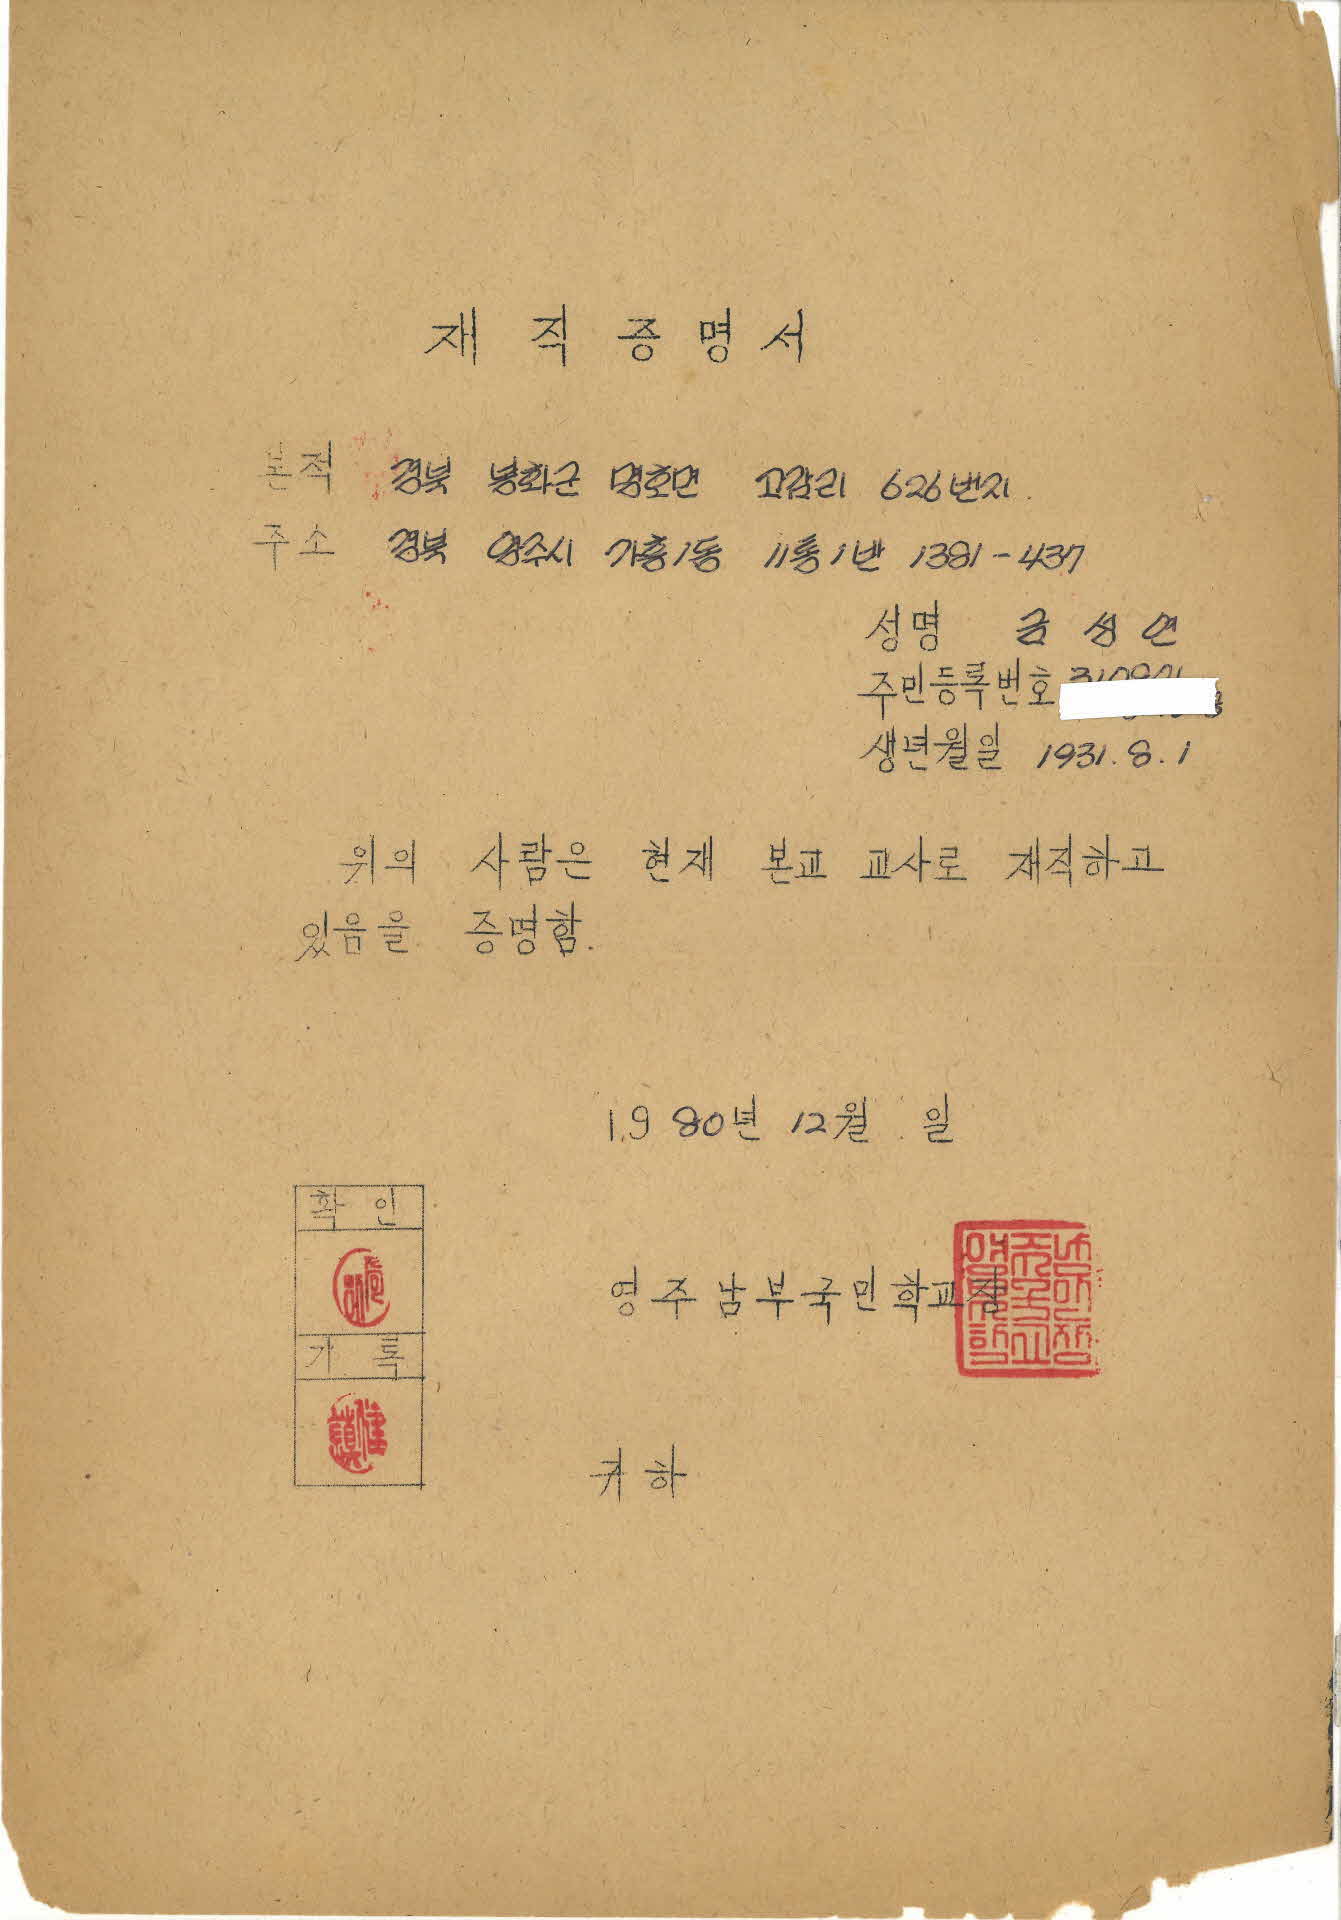 재직증명서
본적 경북 봉화군 명호면 고감리 626번지
주소 경북 영주시 가흥1동 11통1반 1381-437
성명 금성연
주민등록번호
생년월일 1931.8.1
위의 사람은 현재 본교 교사로 재직하고
있음을 증명함.
1980년 12월 일
확인
영주남부국민학교장
기록
귀하